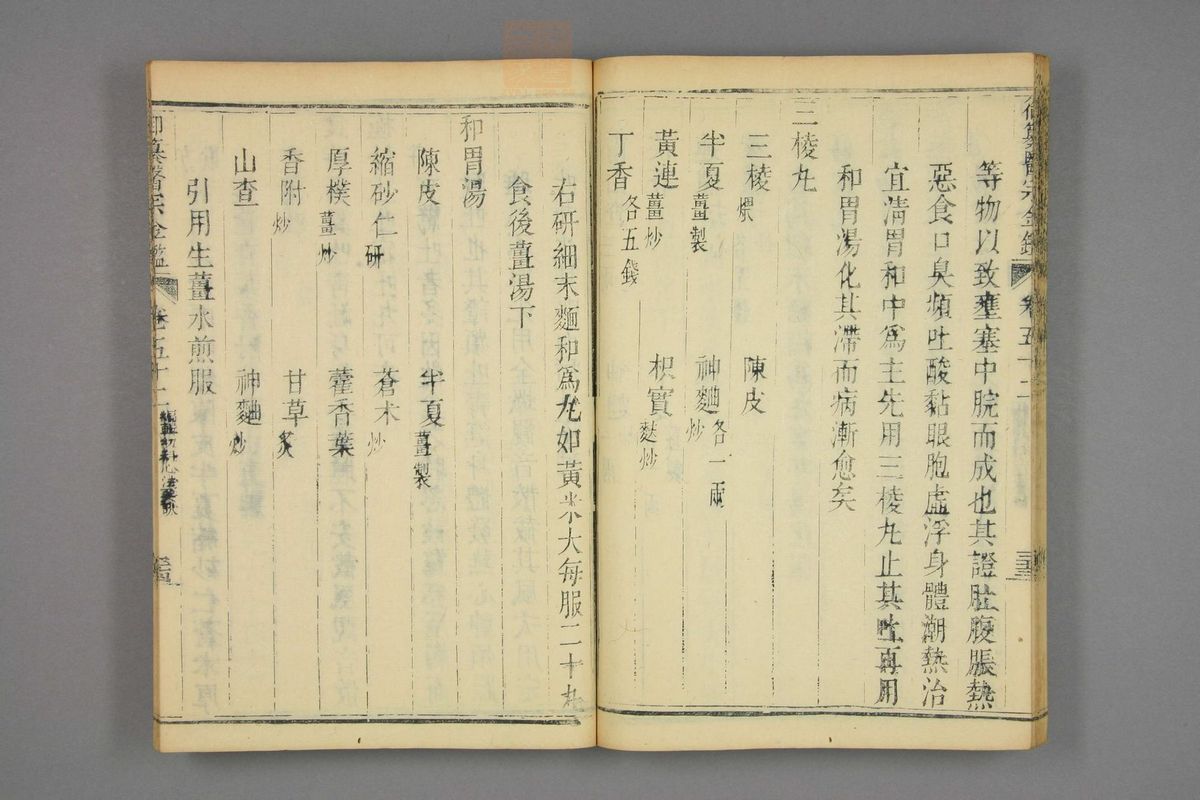 等物以致壅塞中脘而成也其證肚腹脹熱
惡食口臭頻吐酸黏眼胞虛浮身體潮熱治
宜清胃和中爲主先用三棱丸止其吐再用
和胃湯化其滯而病漸愈矣
三棱丸
三棱煨 陳皮
半夏薑製 神麯炒各一兩
黃連薑炒 枳實麩炒
丁香各五錢
右研細末麵和爲丸如黃米大每服二十丸
食後薑湯下
和胃湯
陳皮 半夏薑製
縮砂仁研 蒼朮炒
厚樸薑炒 藿香葉
香附炒 甘草炙
山查 神麯炒
引用生薑水煎服
御纂醫宗金鑑 卷五十二